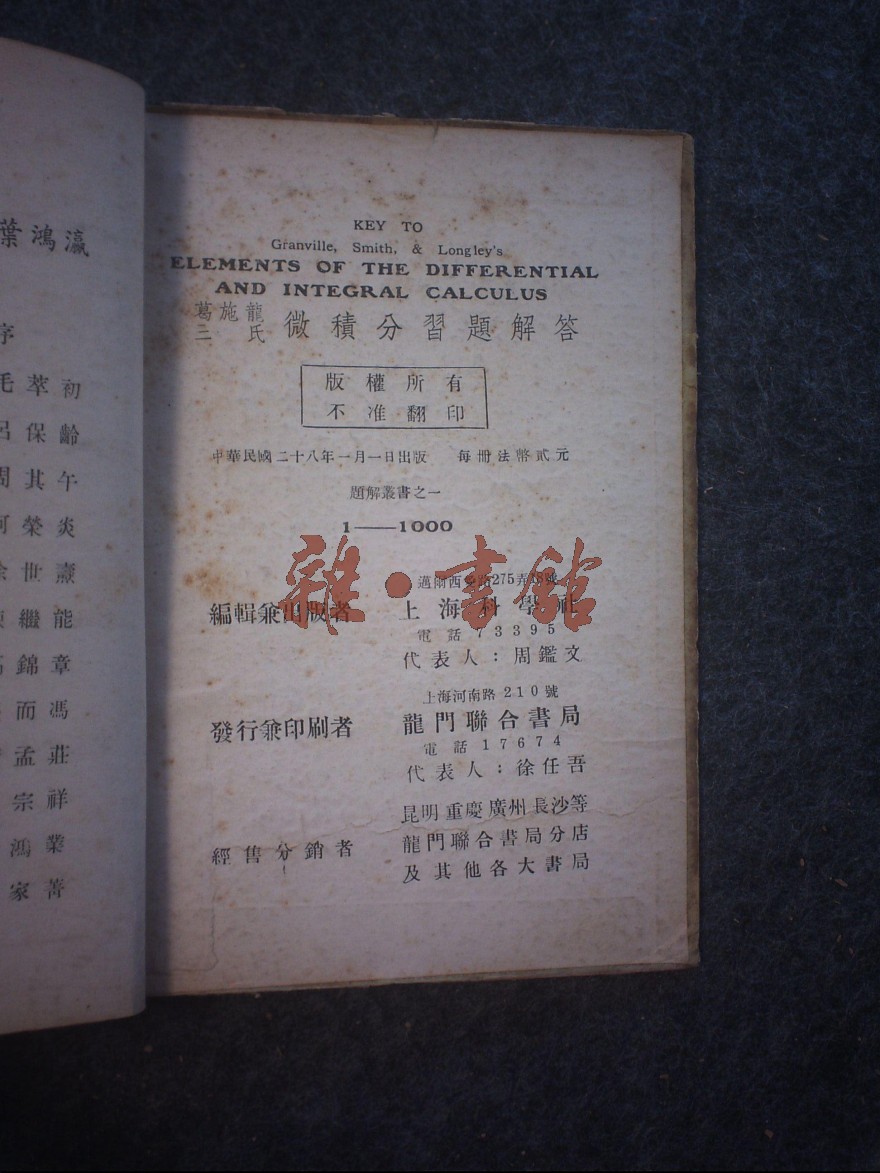 葉鴻瀛
序
毛萃初
呂保齡
周其午
何榮炎
世
繼能
錦章
而馮
孟莊
宗祥
鴻業
家菁
KEY TO
Granville, Smith, & Longley's
ELEMENTS OF THE DIFFERENTIAL
AND INTEGRAL CALCULUS
葛施龍三氏 微積分習題解答
版權所有
不准翻印
中華民國二十八年一月一日出版 每冊法幣貳元
題解叢書之一
1——1000
雜·書館
邁爾西愛路275弄18號
編輯兼出版者 上海科學社
電話 73395
代表人：周鑑文
上海河南路210號
發行兼印刷者 龍門聯合書局
電話 17674
代表人：徐任吾
昆明重慶廣州長沙等
經售分銷者 龍門聯合書局分店
及其他各大書局